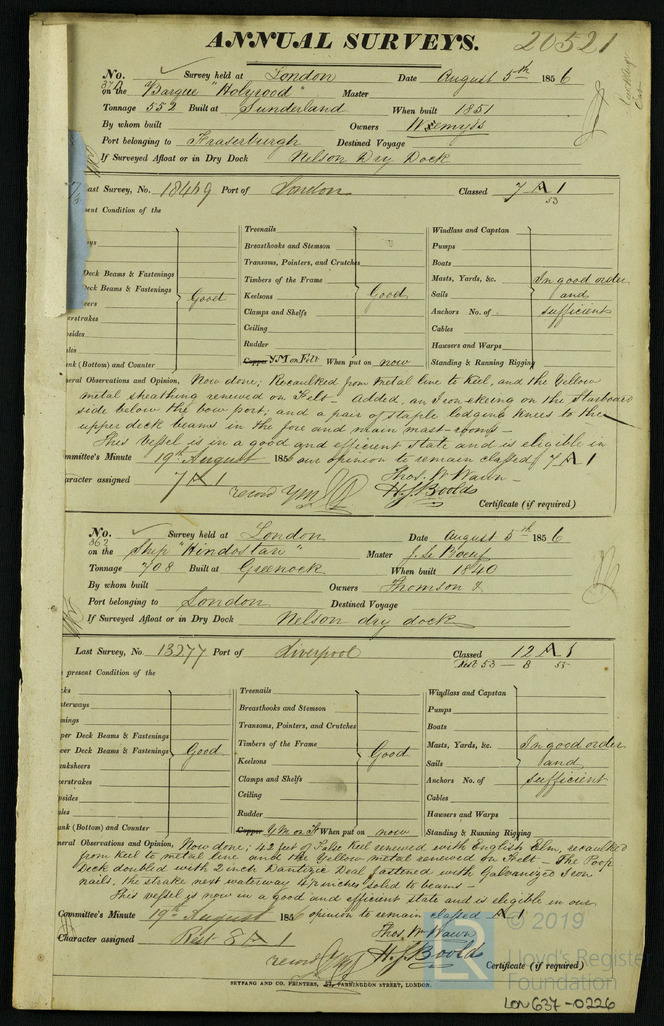 ANNUAL SURVEYS. 20521
No. Survey held at London Date August 5th 1856
on the Barque "Holyrood" Master
Tonnage 552 Built at Sunderland When built 1851
By whom built Owners Wemyss
Port belonging to Fraserburgh Destined Voyage
If Surveyed Afloat or in Dry Dock Nelson Dry Dock
ast Survey, No. 18449 Port of London Classed 7 A 1
53
ent Condition of the
Treenails
Windlass and Capstan
Breasthooks and Stemson
Pumps
Transoms, Pointers, and Crutches
Boats
Deck Beams & Fastenings
Timbers of the Frame
Masts, Yards, &c. In good order
Deck Beams & Fastenings Good
Keelsons Good
Sails and
Clamps and Shelfs
Anchors No. of sufficient
erstrakes
Ceiling
Cables
Rudder
Hawsers and Warps
nk (Bottom) and Counter
Copper YM on Felt When put on now
Standing & Running Rigging
eral Observations and Opinion, Now done; Recaulked from metal line to Keel, and the Yellow
metal sheathing renewed on Felt - Added, an Iron ekeing on the Starboard
side below the bow port; and a pair of staple lodging knees to the
upper deck beams in the fore and main mast-rooms -
This Vessel is in a good and efficient state and is eligible in
mmittee's Minute 19th August 1856 our opinion to remain classed 7 A 1
aracter assigned 7 A 1 Thos. W Wawn
record YM H.J. Boolds
Certificate (if required)
No. Survey held at London Date August 5th 1856
862
on the Ship "Hindostan" Master J. Le Boeuf
Tonnage 708 Built at Greenock When built 1840
By whom built Owners Thomson &
Port belonging to London Destined Voyage
If Surveyed Afloat or in Dry Dock Nelson dry dock
Last Survey, No. 13277 Port of Liverpool Classed 12 A 1
Rest 53 - 8 55
present Condition of the
cks
Treenails
Windlass and Capstan
terways
Breasthooks and Stemson
Pumps
mings
Transoms, Pointers, and Crutches
Boats
per Deck Beams & Fastenings
Timbers of the Frame
Masts, Yards, &c. In good order
wer Deck Beams & Fastenings Good
Keelsons Good
Sails and
anksheers
Clamps and Shelfs
Anchors No. of sufficient
erstrakes
Ceiling
Cables
psides
Rudder
Hawsers and Warps
ank (Bottom) and Counter
Copper YM on F When put on now
Standing & Running Rigging
neral Observations and Opinion, Now done; 42 feet of False Keel renewed with English Elm, recaulked
from keel to metal line and the Yellow metal renewed on Felt - The Poop
Deck doubled with 2 inch Dantzic Deal fastened with Galvanized Iron
nails, the strake next waterway 4½ inches solid to beams -
This vessel is now in a good and efficient state and is eligible in our
Committee's Minute 19th August 1856 opinion to remain classed A 1
Character assigned Rest 8 A 1 Thos. W Wawn
record YM H.J. Boolds
Certificate (if required)
SEYFANG AND CO. PRINTERS, FARRINGDON STREET, LONDON.
LR © 2019
Lloyd's Register
Foundation
LON637-0226